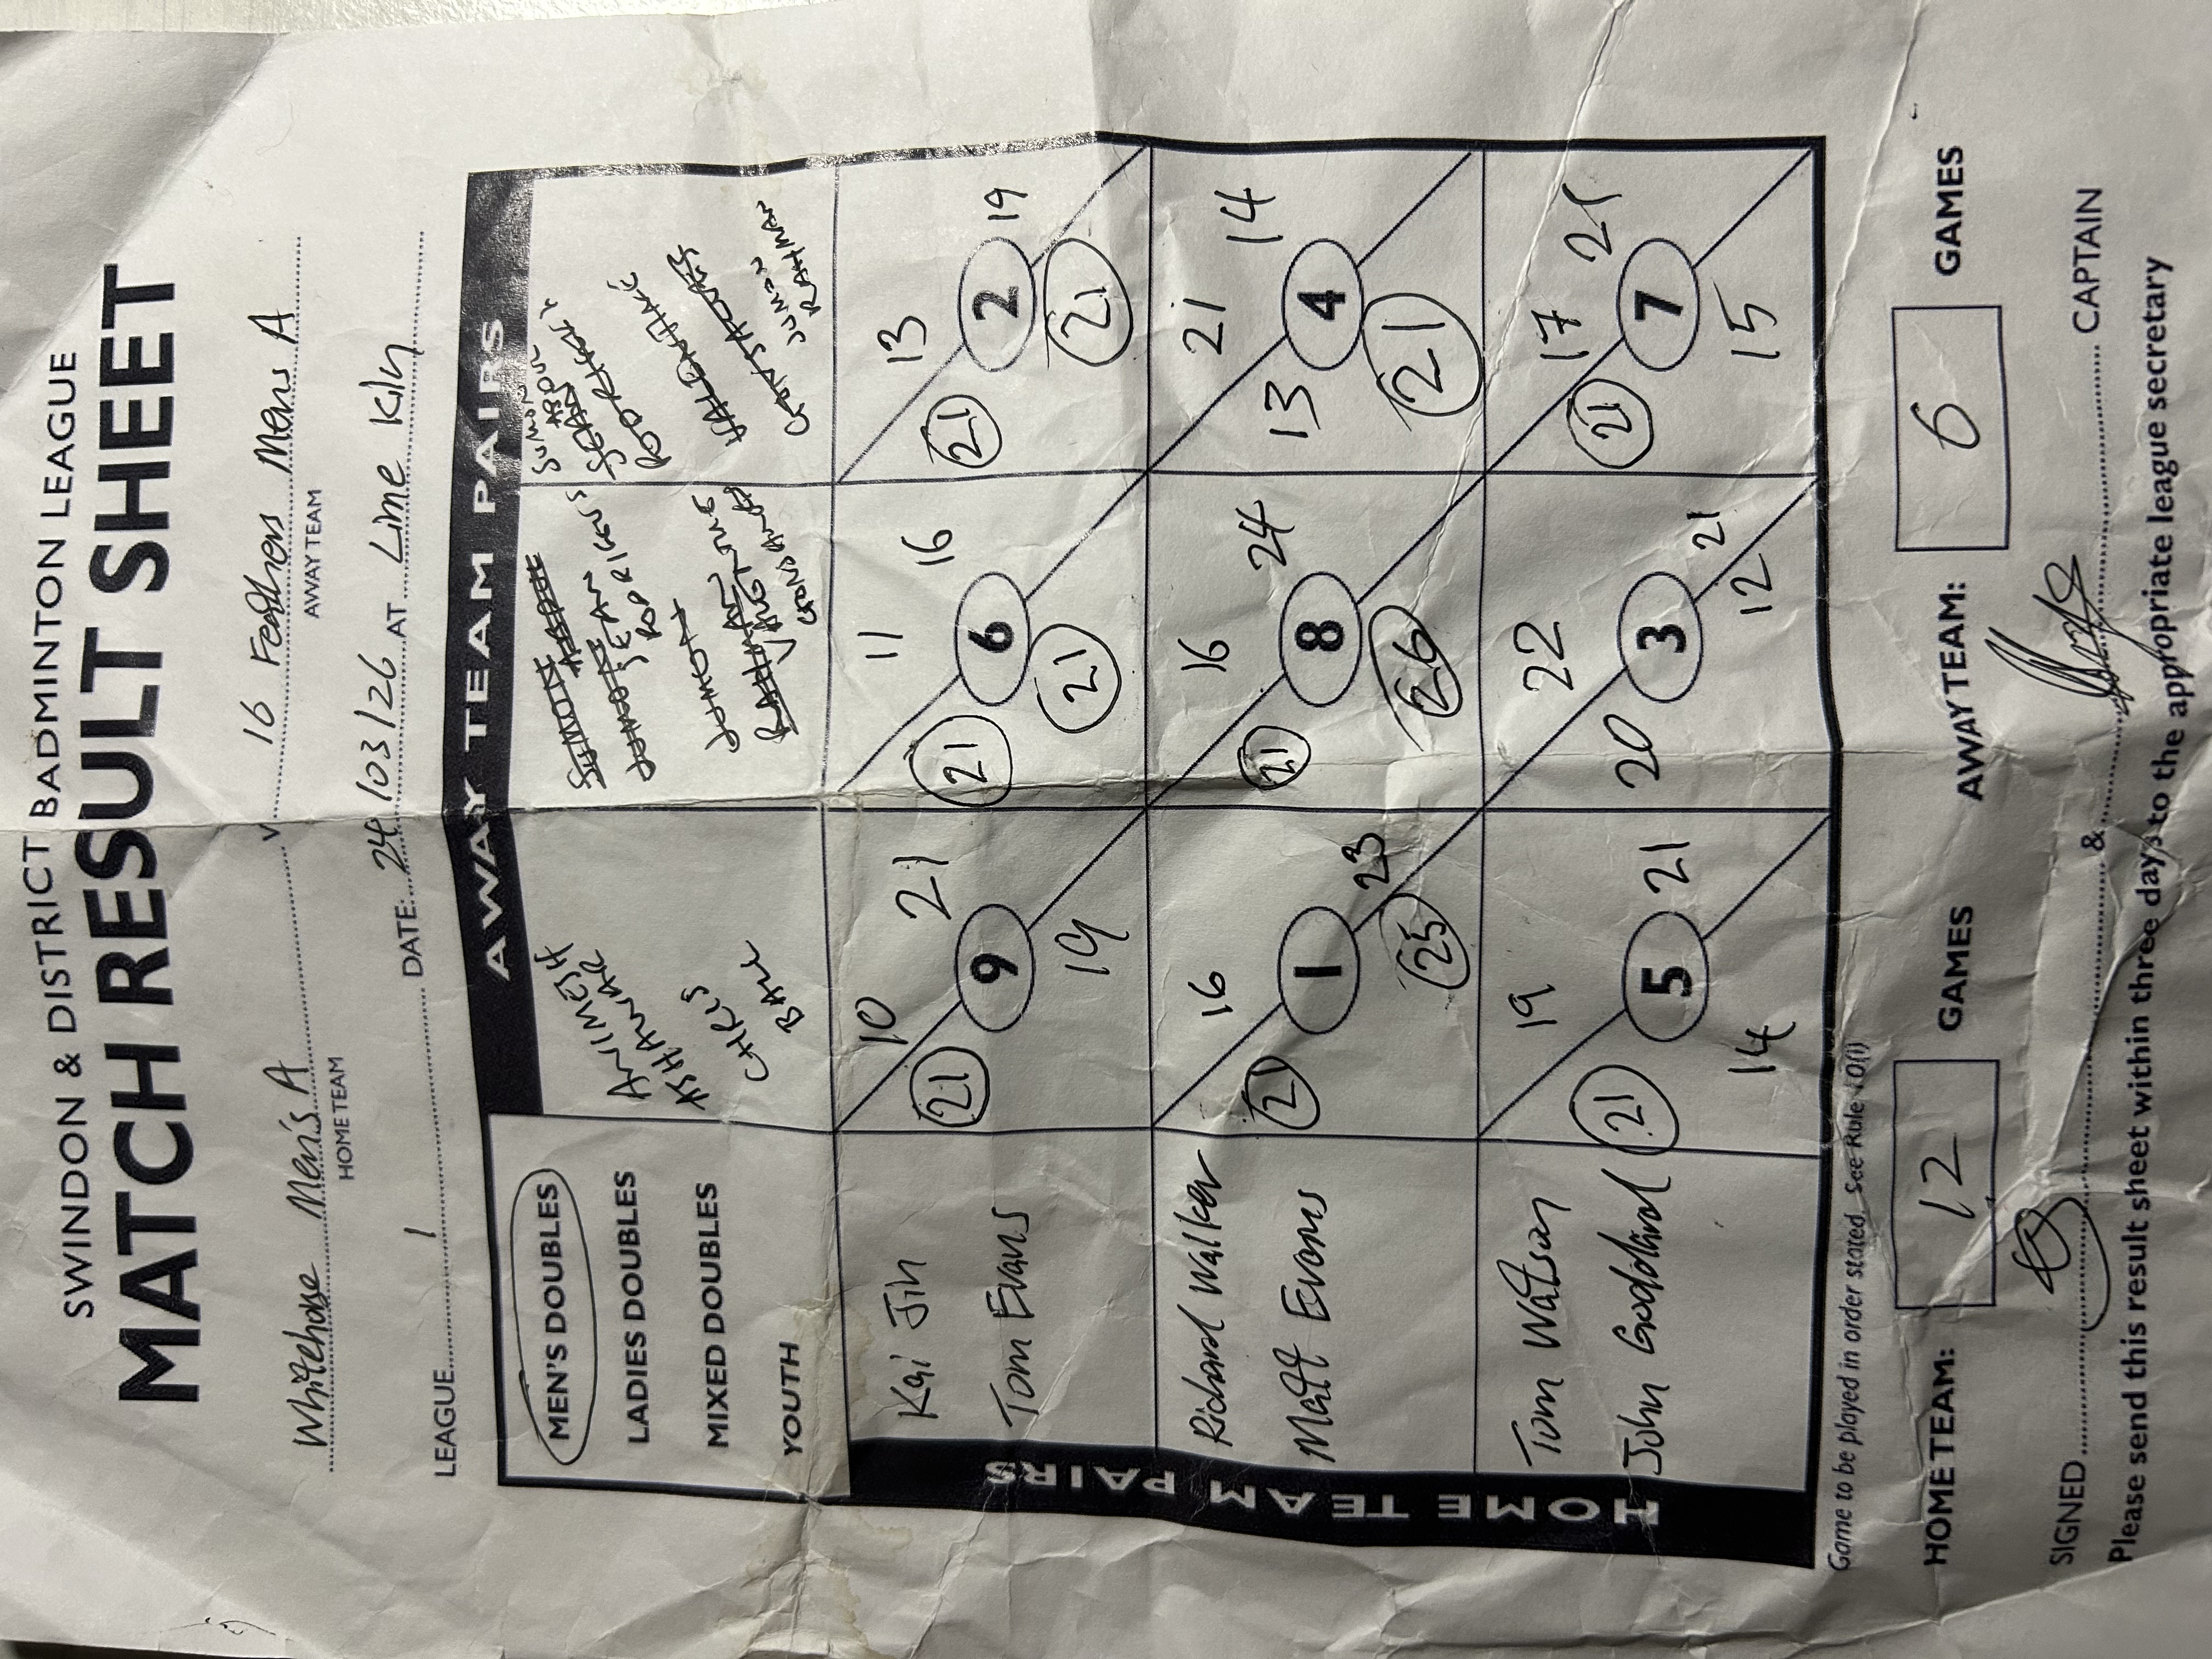 SWINDON & DISTRICT BADMINTON LEAGUE
MATCH RESULT SHEET
Whitehorse Men's A v 16 Feathers Mens A
HOME TEAM AWAY TEAM
LEAGUE 1 DATE: 24/03/26 AT Lime Kiln
AWAY TEAM PAIRS
MEN'S DOUBLES
LADIES DOUBLES
MIXED DOUBLES
YOUTH
ANIMESH
CHRIS
BALL
SEAN
JUMON
RAHMAN
HOME TEAM PAIRS
Kai Jin
Tom Evans
21 10 9 21 19
21 11 6 16 21
21 13 2 19 21
Richard Walker
Matt Evans
21 16 1 23 25
21 16 8 24 26
13 21 4 14 21
Tom Watson
John Goddard
21 19 5 21 14
20 22 3 21 12
21 17 7 21 15
Game to be played in order stated. See Rule 10(i)
HOME TEAM: 12 GAMES AWAY TEAM: 6 GAMES
SIGNED & CAPTAIN
Please send this result sheet within three days to the appropriate league secretary